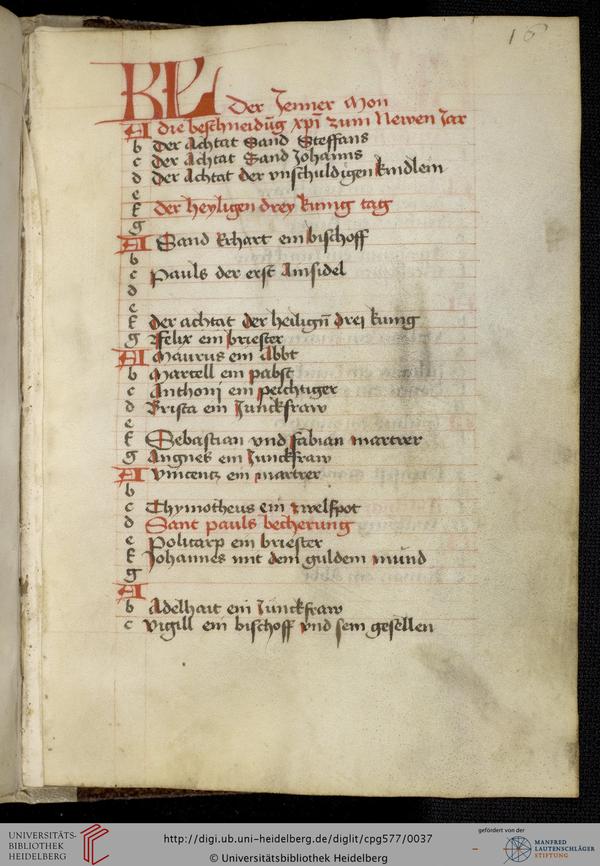 16
KL Der Jenner Mon
A die beschneidūg xpī zum Newen Jar
b Der Achtat Sand Steffans
c der Achtat Sand Johanns
d Der Achtat der vnschuldigen kindlein
e
f der heyligen drey kunig tag
g
A Sand Erhart ein bischoff
b
c Pauls der erst Ainsidel
d
e
f der achtat der heiligñ drei kunig
g Felix ein briester
A Maurus ein Abbt
b Martell ein pabst
c Anthonij ein peichtiger
d Prisca ein Junckfraw
e
f Sebastian vnd fabian martrer
g Angnes ein Junckfraw
A Vincentz ein martrer
b
c Thymotheus ein zwelfpot
d Sant pauls becherung
e Policarp ein briester
f Johannes mit dem guldem mund
g
A
b Adelhait ein Junckfraw
c Vigill ein bischoff vnd sein gesellen
UNIVERSITÄTS-
BIBLIOTHEK
HEIDELBERG
http://digi.ub.uni-heidelberg.de/diglit/cpg577/0037
© Universitätsbibliothek Heidelberg
gefördert von der
MANFRED
LAUTENSCHLÄGER
STIFTUNG